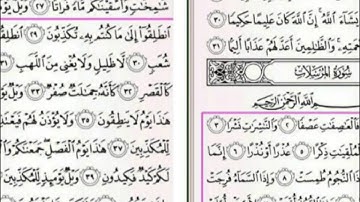 شَآءَ ٱللَّهُ ۚ إِنَّ ٱللَّهَ كَانَ عَلِيمًا حَكِيمًا ٣٠
وَٱلظَّٰلِمِينَ أَعَدَّ لَهُمْ عَذَابًا أَلِيمًۢا ٣١
سُورَةُ المُرْسَلَاتِ
ٱللَّهِ ٱلرَّحْمَٰنِ ٱلرَّحِيمِ
فَٱلْعَٰصِفَٰتِ عَصْفًا ٢ وَٱلنَّٰشِرَٰتِ نَشْرًا ٣
فَٱلْمُلْقِيَٰتِ ذِكْرًا ٥ عُذْرًا أَوْ نُذْرًا ٦ إِنَّمَا
فَإِذَا ٱلنُّجُومُ طُمِسَتْ ٨ وَإِذَا ٱلسَّمَآءُ فُرِجَتْ
شَٰمِخَٰتٍ وَأَسْقَيْنَٰكُم مَّآءً فُرَاتًا ٢٧ وَيْلٌ
ٱنطَلِقُوٓا۟ إِلَىٰ مَا كُنتُم بِهِۦ تُكَذِّبُونَ ٢٩
شُعَبٍ ٣٠ لَّا ظَلِيلٍ وَلَا يُغْنِى مِنَ ٱللَّهَبِ ٣١
كَٱلْقَصْرِ ٣٢ كَأَنَّهُۥ جِمَٰلَتٌ صُفْرٌ ٣٣ وَيْلٌ
هَٰذَا يَوْمُ لَا يَنطِقُونَ ٣٥ وَلَا يُؤْذَنُ لَهُمْ
لِّلْمُكَذِّبِينَ ٣٧ هَٰذَا يَوْمُ ٱلْفَصْلِ جَمَعْنَٰكُمْ
لَكُمْ كَيْدٌ فَكِيدُونِ ٣٩ وَيْلٌ يَوْمَئِذٍ لِّلْمُكَذِّبِينَ